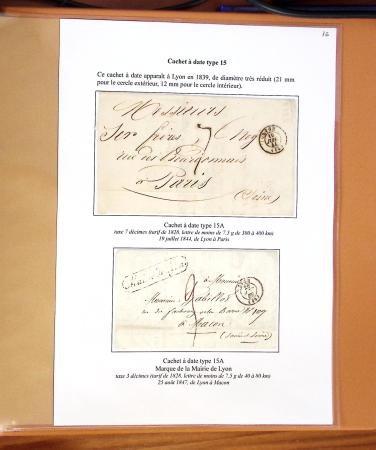 16
Cachet à date type 15
Ce cachet à date apparaît à Lyon en 1839, de diamètre très réduit (21 mm
pour le cercle extérieur, 12 mm pour le cercle intérieur).
Messieurs
frères
7
rue des Bourdonnais
à Paris
(Seine)
Cachet à date type 15A
taxe 7 décimes (tarif de 1828, lettre de moins de 7.5 g de 300 à 400 km)
19 juillet 1844, de Lyon à Paris
à Monsieur
Monsieur
à Macon
(Saone et Loire)
Cachet à date type 15A
Marque de la Mairie de Lyon
taxe 3 décimes (tarif de 1828, lettre de moins de 7.5 g de 40 à 80 km)
25 août 1847, de Lyon à Macon